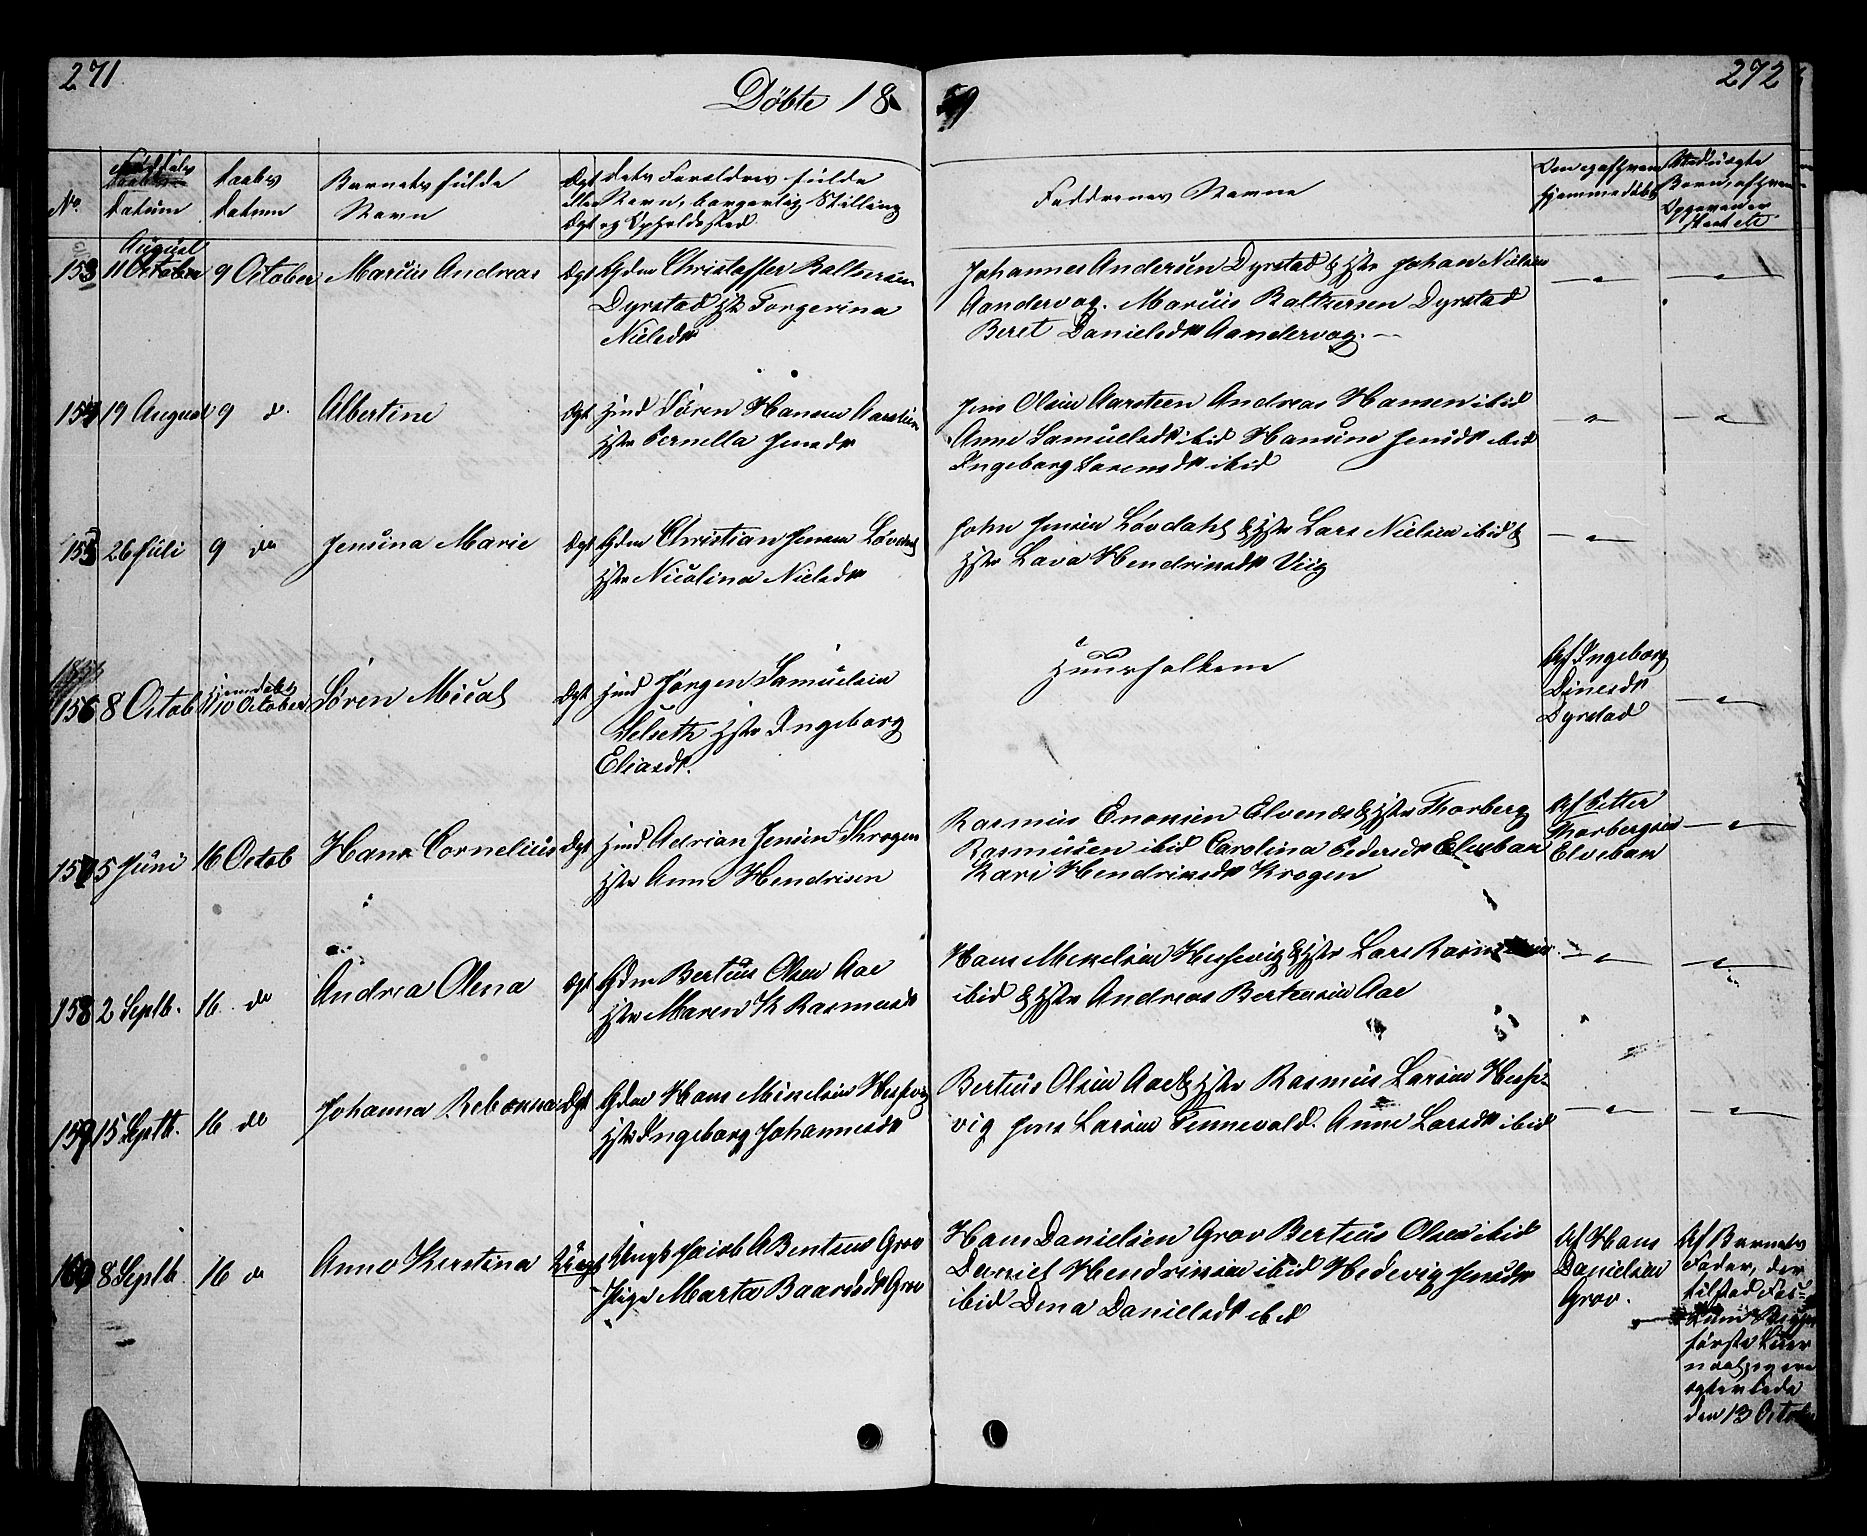 271
272
Döbte 18 59
No.
Datum
Daabs
Datum
Barnets fulde
Navn
Ægt
Ægt
dets Forældres fulde
Navn, borgerlig Stilling
og Opholdssted
Faddrenes Navne
Hjemmedöbt
August
153 11 October 9 October Marius Andreas Ægt Gdm Christoffer Baltzersen
Dyrstad Hst Torgerina
Nielsdr
Johannes Andersen Dyrstad & Hst Johan Nielsen
Aandervag. Marius Baltzersen Dyrstad
Beret Danielsdr Aandervag.
154 19 August 9 do Albertine Ægt Hmd Sören Hansen Aarsteen
Hst Pernella Jensdr
Jens Olsen Aarsteen Andreas Hansen ibid
Anne Samuelsdr ibid Hansine Jensdr ibid
Ingeborg Larensdr ibid
155 26 Juli 9 do Jensina Marie Ægt Gdm Christian Jensen Lövdahl
Hst Nicolina Nielsdr
John Jensen Lövdahl & Hst Lars Nielsen ibid &
Hst Lava Hendriksdr Viig
156 8 Octob 10 October Sören Mical Ægt Hmd Jörgen Samuelsen
Selseth Hst Ingeborg
Eliasdr.
Huusfolkene
Af Ingeborg
Dinesdr
Dyrstad
157 5 Juni 16 Octob Hans Cornelius Ægt Hmd Adrian Jensen Krogen
Hst Anne Hendriksen
Rasmus Enoksen Elvenes & Hst Thorberg
Rasmusen ibid Carolina Pedersdr Elvebak
Kari Hendriksdr Krogen
Af Petter
Thorbergsen
Elvebak
158 2 Septb. 16 do Andrea Olena Ægt Gdm Bertius Olsen Aae
Hst Maren K Rasmusdr
Hans Mikelsen Hessevig & Hst Lars
ibid & Hst Andreas Berteusen Aae
159 15 Septb. 16 do Johanna Rebekka Ægt Gdm Hans Mikelsen Hessevig
Hst Ingeborg Johannesdr
Bertius Olsen Aae & Hst Rasmus Larsen Hesse-
vig Jens Larsen Tennevold. Anne Larsdr ibid
160 8 Septb. 16 do Anne Kirstina Uægt Ungk Jacob A Bentsen Grov
Pige Marta Baardsdr Grov
Hans Danielsen Grov Bertius Olsen ibid
Daniel Hendriksen ibid Hedevig Jensdr
ibid Dina Danielsdr ibid
Af Hans
Danielsen
Grov.
Af Barnets
Fader, der
förste Leier
den 13 October